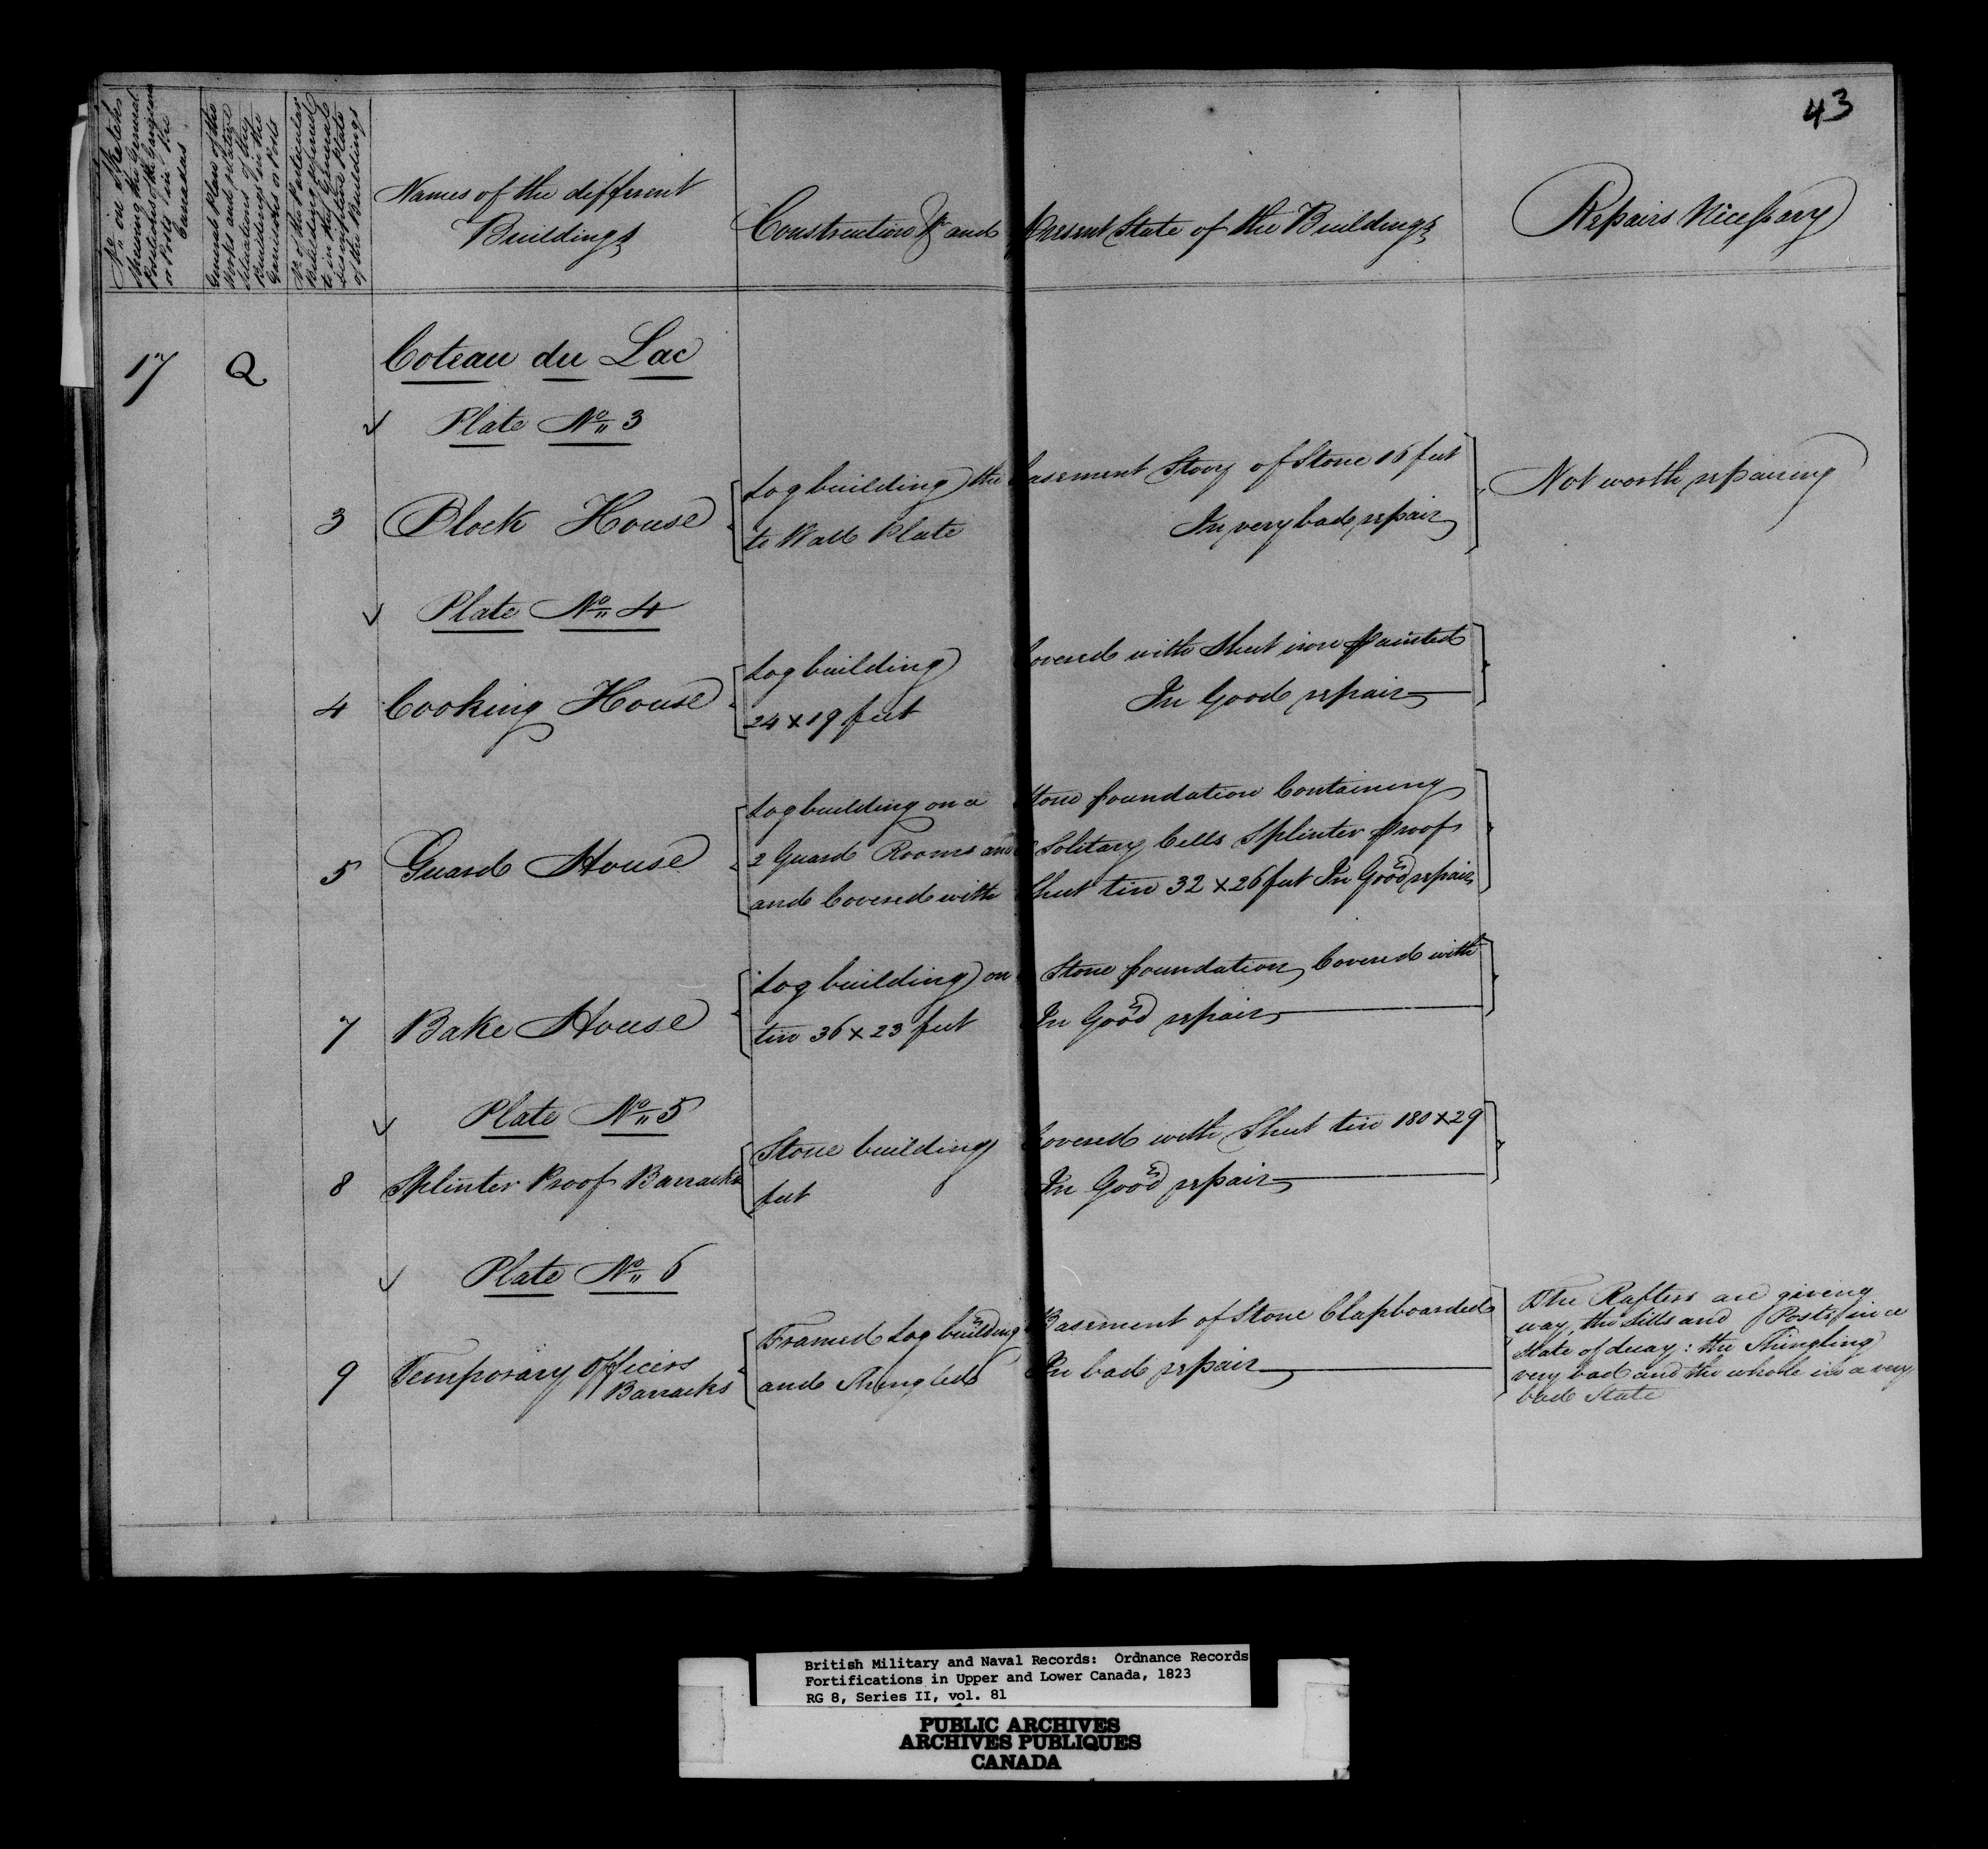 43
No. on Sketch
shewing the General
Positions of the Garrisons
or Posts in the
Canadas
General Plan of the
Works and relative
situations of the
Buildings in the
Garrisons or Posts
No. of the Particular
Building referred
to in the General
descriptive Plate
of the Buildings
Names of the different
Buildings
Construction &c and Present State of the Buildings
Repairs Necessary
17 Q Coteau du Lac
Plate No. 3
3 Block House
Log building the basement Story of Stone 16 feet
to Wall Plate In very bad repair
Not worth repairing
Plate No. 4
4 Cooking House
Log building Covered with Sheet iron painted
24 x 19 feet In Good repair
5 Guard House
Log building on a Stone foundation Containing
2 Guard Rooms and Solitary Cells Splinter proof
and Covered with Sheet tin 32 x 26 feet In Good repair
7 Bake House
Log building on Stone foundation, Covered with
tin 36 x 23 feet In Good repair
Plate No. 5
8 Splinter Proof Barracks
Stone building Covered with Sheet tin 180 x 29
feet In Good repair
Plate No. 6
9 Temporary Officers
Barracks
Framed Log building Basement of Stone Clapboarded
and Shingled In bad repair
The Rafters are giving
way, the Sills and Posts in a
State of decay: the Shingling
very bad and the whole in a very
bad State
British Military and Naval Records: Ordnance Records
Fortifications in Upper and Lower Canada, 1823
RG 8, Series II, vol. 81
PUBLIC ARCHIVES
ARCHIVES PUBLIQUES
CANADA